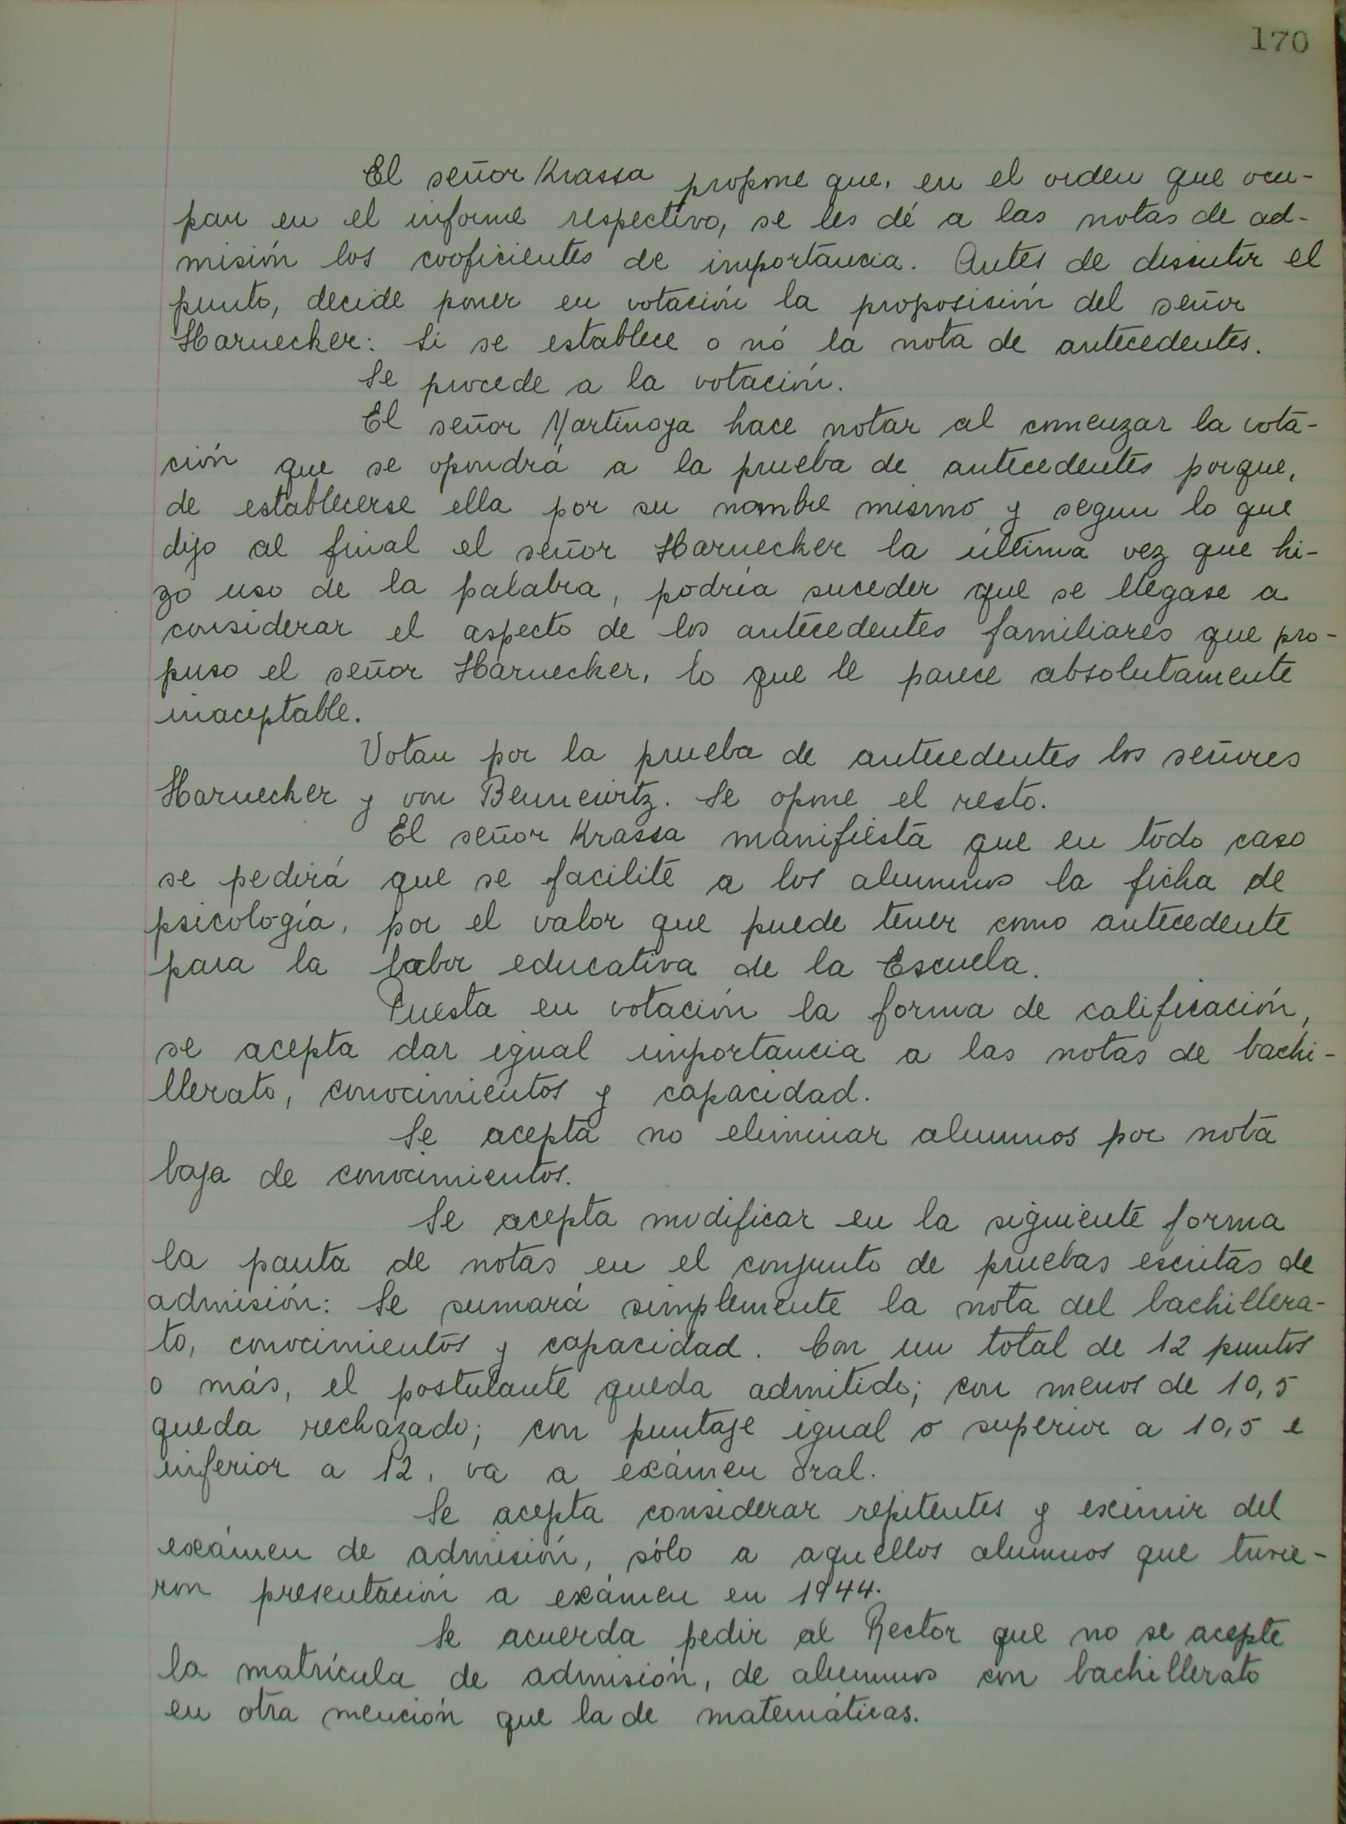 170
El señor Krassa propone que, en el orden que ocu-
pan en el informe respectivo, se les dé a las notas de ad-
misión los cooficientes de importancia. Antes de discutir el
punto, decide poner en votación la proposición del señor
Harnecker: Si se establece o nó la nota de antecedentes.
Se procede a la votación.
El señor Martinoya hace notar al comenzar la vota-
ción que se opondrá a la prueba de antecedentes porque,
de establecerse ella por su nombre mismo y segun lo que
dijo al final el señor Harnecker la última vez que hi-
zo uso de la palabra, podría suceder que se llegase a
considerar el aspecto de los antecedentes familiares que pro-
puso el señor Harnecker, lo que le parece absolutamente
inaceptable.
Votan por la prueba de antecedentes los señores
Harnecker y von Bennewitz. Se opone el resto.
El señor Krassa manifiesta que en todo caso
se pedirá que se facilite a los alumnos la ficha de
psicología, por el valor que puede tener como antecedente
para la labor educativa de la Escuela.
Puesta en votación la forma de calificación,
se acepta dar igual importancia a las notas de bachi-
llerato, conocimientos y capacidad.
Se acepta no eliminar alumnos por nota
baja de conocimientos.
Se acepta modificar en la siguiente forma
la pauta de notas en el conjunto de pruebas escritas de
admisión: Se sumará simplemente la nota del bachillera-
to, conocimientos y capacidad. Con un total de 12 puntos
o más, el postulante queda admitido; con menos de 10,5
queda rechazado; con puntaje igual o superior a 10,5 e
inferior a 12, va a exámen oral.
Se acepta considerar repitentes y eximir del
exámen de admisión, sólo a aquellos alumnos que tuvie-
ron presentación a exámen en 1944.
Se acuerda pedir al Rector que no se acepte
la matrícula de admisión, de alumnos con bachillerato
en otra mención que la de matemáticas.